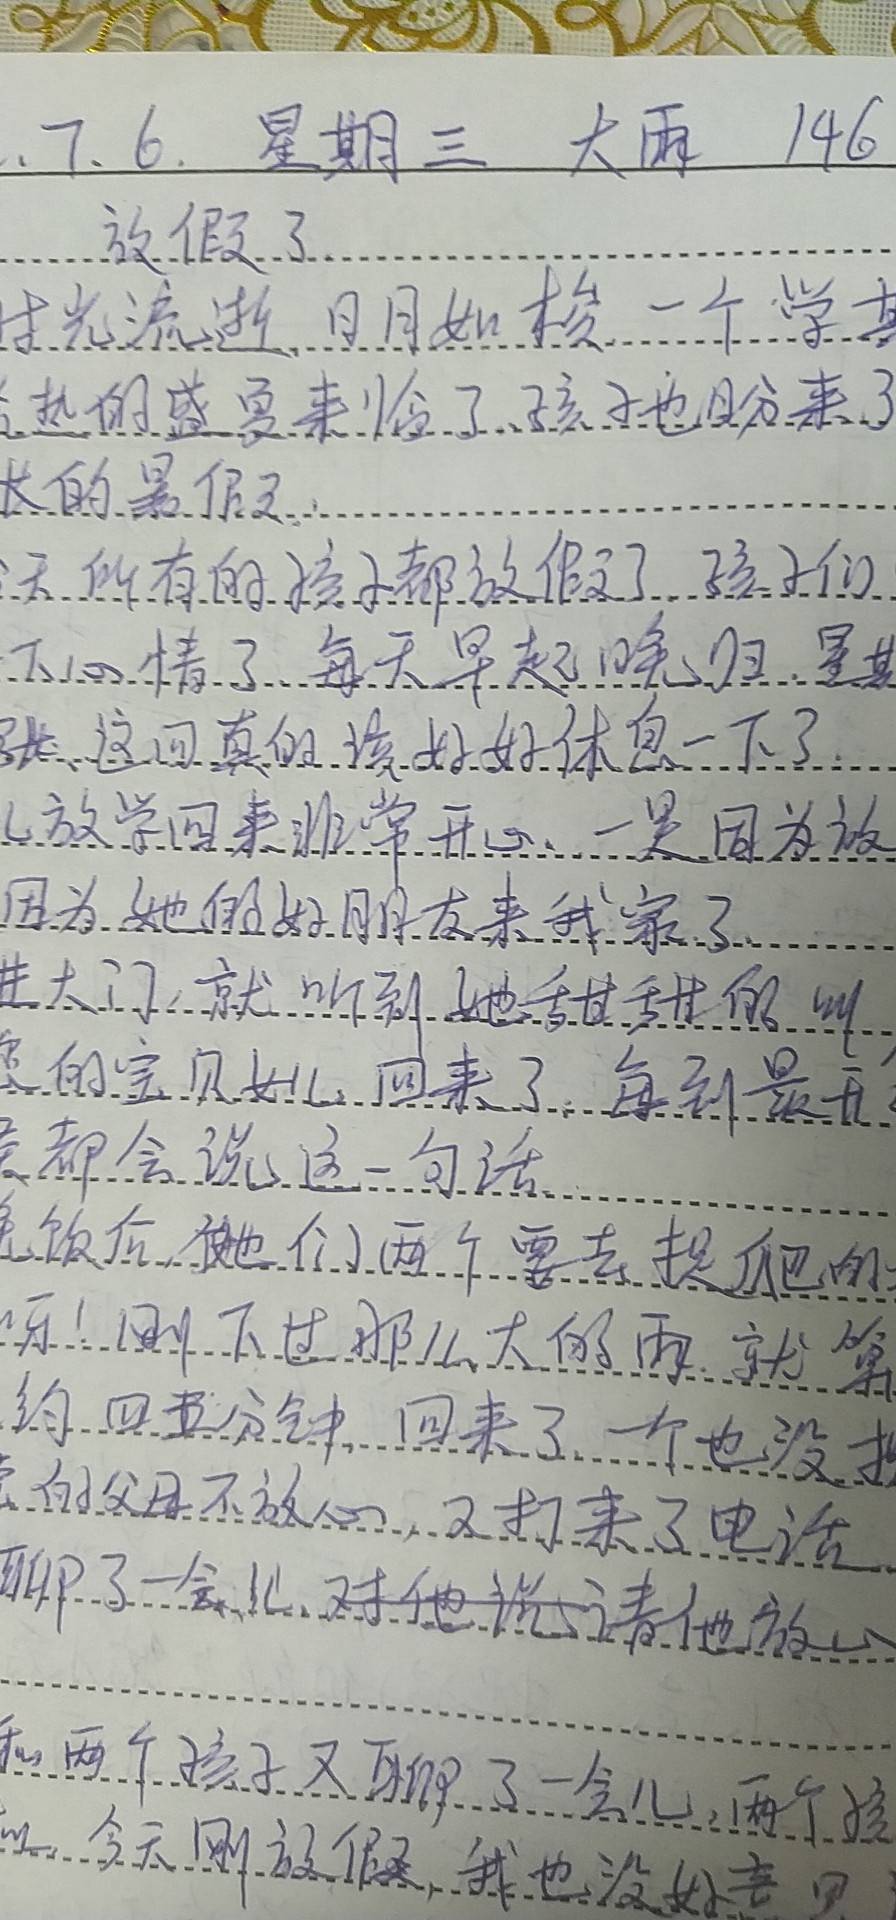 .7.6. 星期三 大雨 146
放假了.
时光流逝、日月如梭、一个学其
热的盛夏来临了、孩子也盼来了
长的暑假、
天所有的孩子都放假了、孩子们
下心情了、每天早起晚归、星其
这回真的该好好休息一下了.
儿放学回来非常开心、一是因为放
因为她的好朋友来我家了、
进大门、就听到她甜甜的叫
的宝贝女儿回来了、每到最开
都会说这一句话、
晚饭后、她们两个要去捉爬的
呀!刚下过那么大的雨、就算
约四五分钟、回来了、一个也没抓
的父母不放心、又打来了电话、
聊了一会儿、对他说请他放心
和两个孩子又聊了一会儿、两个孩
今天刚放假、我也没好意